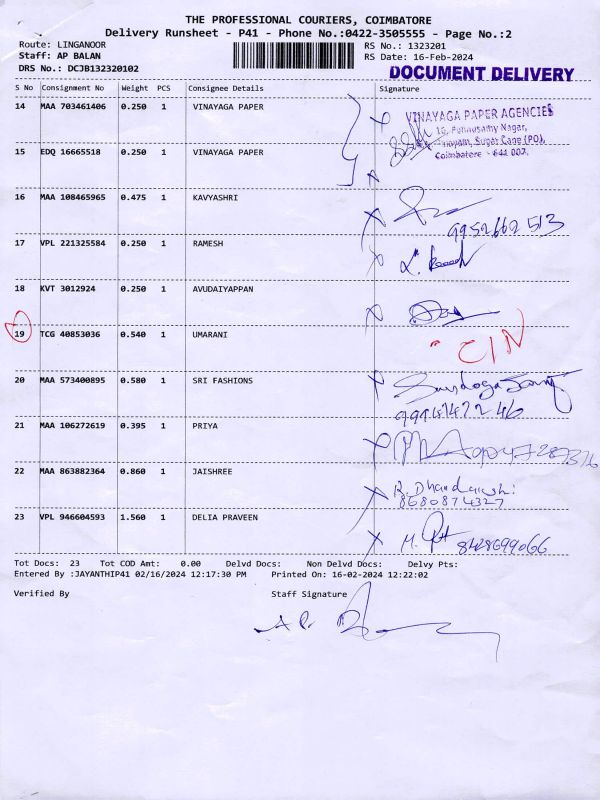 THE PROFESSIONAL COURIERS, COIMBATORE
Delivery Runsheet - P41 - Phone No.:0422-3505555 - Page No.:2
Route: LINGANOOR
Staff: AP BALAN
DRS No.: DCJB132320102
RS No.: 1323201
RS Date: 16-Feb-2024
DOCUMENT DELIVERY
S No Consignment No Weight PCS Consignee Details Signature
14 MAA 703461406 0.250 1 VINAYAGA PAPER
VINAYAGA PAPER AGENCIES
Ponnusamy Nagar,
Sugar Cane (PO),
Coimbatore - 641 007.
15 EDQ 16665518 0.250 1 VINAYAGA PAPER
16 MAA 108465965 0.475 1 KAVYASHRI
9952662513
17 VPL 221325584 0.250 1 RAMESH
18 KVT 3012924 0.250 1 AVUDAIYAPPAN
19 TCG 40853036 0.540 1 UMARANI
20 MAA 573400895 0.580 1 SRI FASHIONS
21 MAA 106272619 0.395 1 PRIYA
22 MAA 863882364 0.860 1 JAISHREE
8680874327
23 VPL 946604593 1.560 1 DELIA PRAVEEN
8428699066
Tot Docs: 23 Tot COD Amt: 0.00 Delvd Docs: Non Delvd Docs: Delvy Pts:
Entered By :JAYANTHIP41 02/16/2024 12:17:30 PM Printed On: 16-02-2024 12:22:02
Verified By Staff Signature